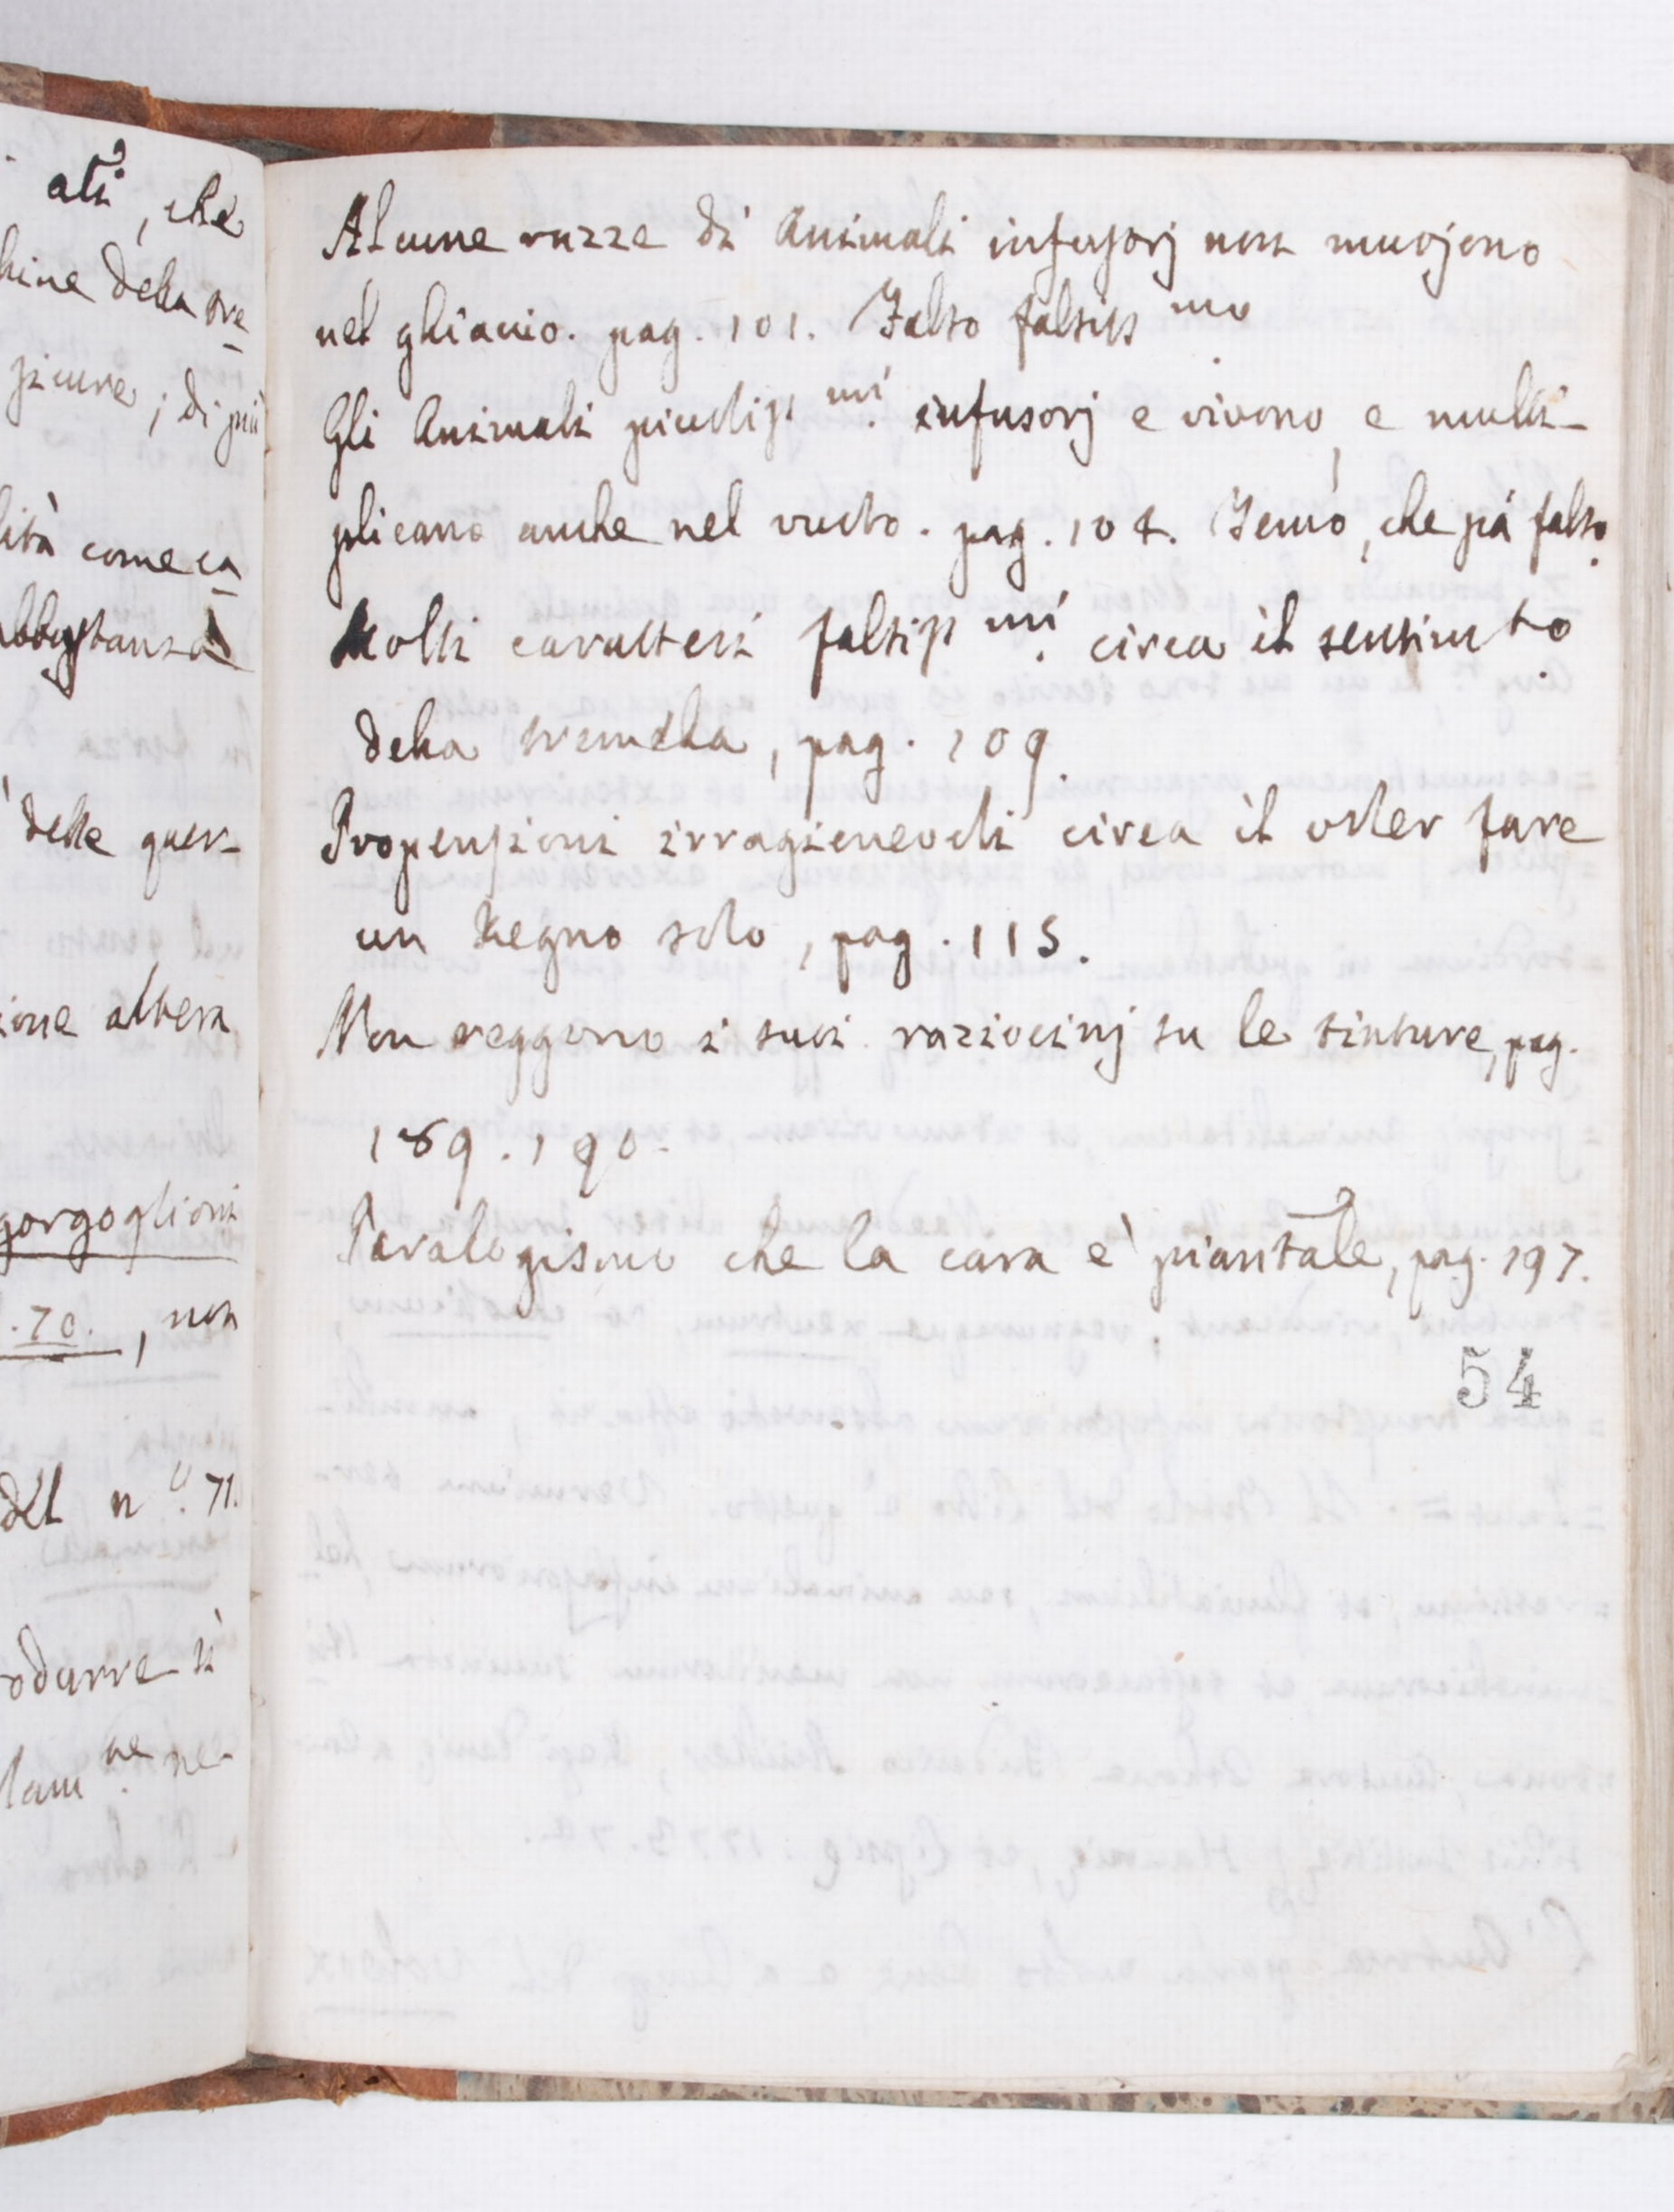 ati, che
hine della pre-
sicure; di più
lità come ca-
abbastanza
delle quer-
ione altera
gorgoglioni
.70., non
del n.° 71.
odurre sì
lam.ne ne-
Alcune razze di Animali infusorj non muojono
nel ghiaccio. pag. 101. Falso falsiss.mo
Gli Animali picciliss.mi infusorj e vivono, e molti-
plicano anche nel vuoto. pag. 104. Temo, che sia falso.
Molti caratteri falsiss.mi circa il sentim.to
della tremella, pag. 109.
Propensioni irragionevoli circa il voler fare
un Regno solo, pag. 115.
Non reggono i suoi raziocinj su le tinture, pag.
189. 190.
Paralogismo che la cara è piantale, pag. 197.
54